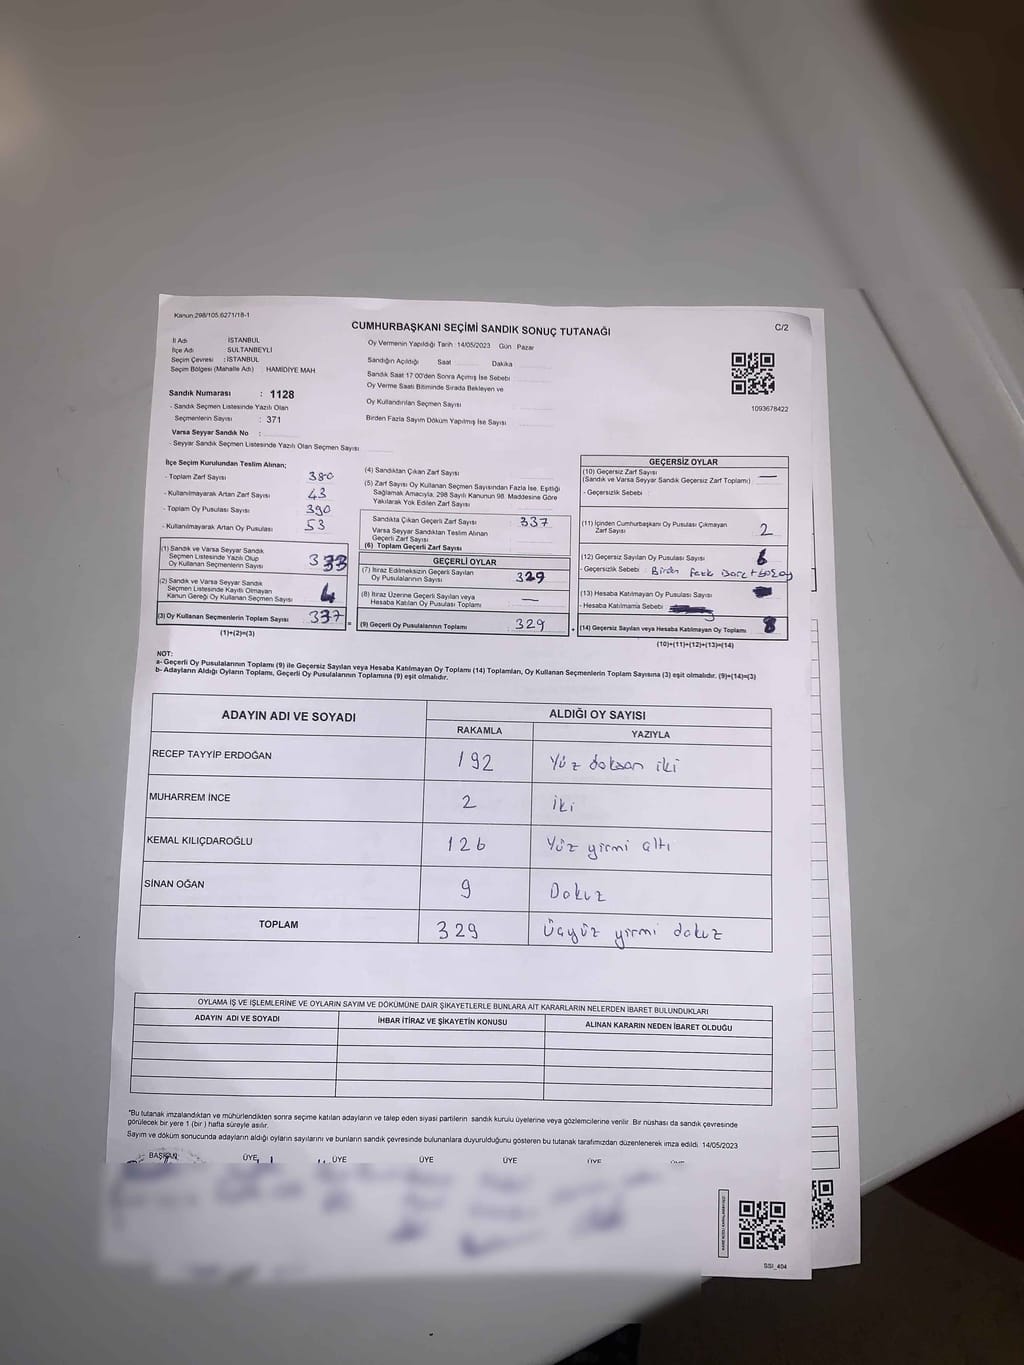 Kanun:298/105,6271/18-1
C/2
CUMHURBAŞKANI SEÇİMİ SANDIK SONUÇ TUTANAĞI
İl Adı : İSTANBUL
İlçe Adı : SULTANBEYLİ
Seçim Çevresi : İSTANBUL
Seçim Bölgesi (Mahalle Adı) : HAMİDİYE MAH
Sandık Numarası : 1128
- Sandık Seçmen Listesinde Yazılı Olan
Seçmenlerin Sayısı : 371
Varsa Seyyar Sandık No :
- Seyyar Sandık Seçmen Listesinde Yazılı Olan Seçmen Sayısı
Oy Vermenin Yapıldığı Tarih :14/05/2023 Gün : Pazar
Sandığın Açıldığı Saat Dakika
Sandık Saat 17:00'den Sonra Açımış İse Sebebi
Oy Verme Saati Bitiminde Sırada Bekleyen ve
Oy Kullandırılan Seçmen Sayısı
Birden Fazla Sayım Döküm Yapılmış İse Sayısı
1093678422
İlçe Seçim Kurulundan Teslim Alınan;
- Toplam Zarf Sayısı 380
- Kullanılmayarak Artan Zarf Sayısı 43
- Toplam Oy Pusulası Sayısı 390
- Kullanılmayarak Artan Oy Pusulası 53
(1) Sandık ve Varsa Seyyar Sandık
Seçmen Listesinde Yazılı Olup
Oy Kullanan Seçmenlerin Sayısı 333
(2) Sandık ve Varsa Seyyar Sandık
Seçmen Listesinde Kayıtlı Olmayan
Kanun Gereği Oy Kullanan Seçmen Sayısı 4
(3) Oy Kullanan Seçmenlerin Toplam Sayısı 337 =
(1)+(2)=(3)
(4) Sandıktan Çıkan Zarf Sayısı
(5) Zarf Sayısı Oy Kullanan Seçmen Sayısından Fazla İse, Eşitliği
Sağlamak Amacıyla; 298 Sayılı Kanunun 98. Maddesine Göre
Yakılarak Yok Edilen Zarf Sayısı
Sandıkta Çıkan Geçerli Zarf Sayısı 337
Varsa Seyyar Sandıktan Teslim Alınan
Geçerli Zarf Sayısı
(6) Toplam Geçerli Zarf Sayısı
GEÇERLİ OYLAR
(7) İtiraz Edilmeksizin Geçerli Sayılan
Oy Pusulalarının Sayısı 329
(8) İtiraz Üzerine Geçerli Sayılan veya
Hesaba Katılan Oy Pusulası Toplamı —
(9) Geçerli Oy Pusulalarının Toplamı 329 +
GEÇERSİZ OYLAR
(10) Geçersiz Zarf Sayısı
(Sandık ve Varsa Seyyar Sandık Geçersiz Zarf Toplamı) —
- Geçersizlik Sebebi
(11) İçinden Cumhurbaşkanı Oy Pusulası Çıkmayan
Zarf Sayısı 2
(12) Geçersiz Sayılan Oy Pusulası Sayısı 6
- Geçersizlik Sebebi : Birden
(13) Hesaba Katılmayan Oy Pusulası Sayısı
- Hesaba Katılmama Sebebi
(14) Geçersiz Sayılan veya Hesaba Katılmayan Oy Toplamı 8
(10)+(11)+(12)+(13)=(14)
NOT:
a- Geçerli Oy Pusulalarının Toplamı (9) ile Geçersiz Sayılan veya Hesaba Katılmayan Oy Toplamı (14) Toplamları, Oy Kullanan Seçmenlerin Toplam Sayısına (3) eşit olmalıdır. (9)+(14)=(3)
b- Adayların Aldığı Oyların Toplamı, Geçerli Oy Pusulalarının Toplamına (9) eşit olmalıdır.
ADAYIN ADI VE SOYADI ALDIĞI OY SAYISI
RAKAMLA YAZIYLA
RECEP TAYYİP ERDOĞAN 192 Yüz doksan iki
MUHARREM İNCE 2 iki
KEMAL KILIÇDAROĞLU 126 Yüz yirmi altı
SİNAN OĞAN 9 Dokuz
TOPLAM 329 Üçyüz yirmi dokuz
OYLAMA İŞ VE İŞLEMLERİNE VE OYLARIN SAYIM VE DÖKÜMÜNE DAİR ŞİKAYETLERLE BUNLARA AİT KARARLARIN NELERDEN İBARET BULUNDUKLARI
ADAYIN ADI VE SOYADI İHBAR İTİRAZ VE ŞİKAYETİN KONUSU ALINAN KARARIN NEDEN İBARET OLDUĞU
"Bu tutanak imzalandıktan ve mühürlendikten sonra seçime katılan adayların ve talep eden siyasi partilerin sandık kurulu üyelerine veya gözlemcilerine verilir. Bir nüshası da sandık çevresinde
görülecek bir yere 1 (bir ) hafta süreyle asılır.
Sayım ve döküm sonucunda adayların aldığı oyların sayılarını ve bunların sandık çevresinde bulunanlara duyurulduğunu gösteren bu tutanak tarafımızdan düzenlenerek imza edildi. 14/05/2023
BAŞKAN ÜYE ÜYE ÜYE ÜYE ÜYE
SSI_404